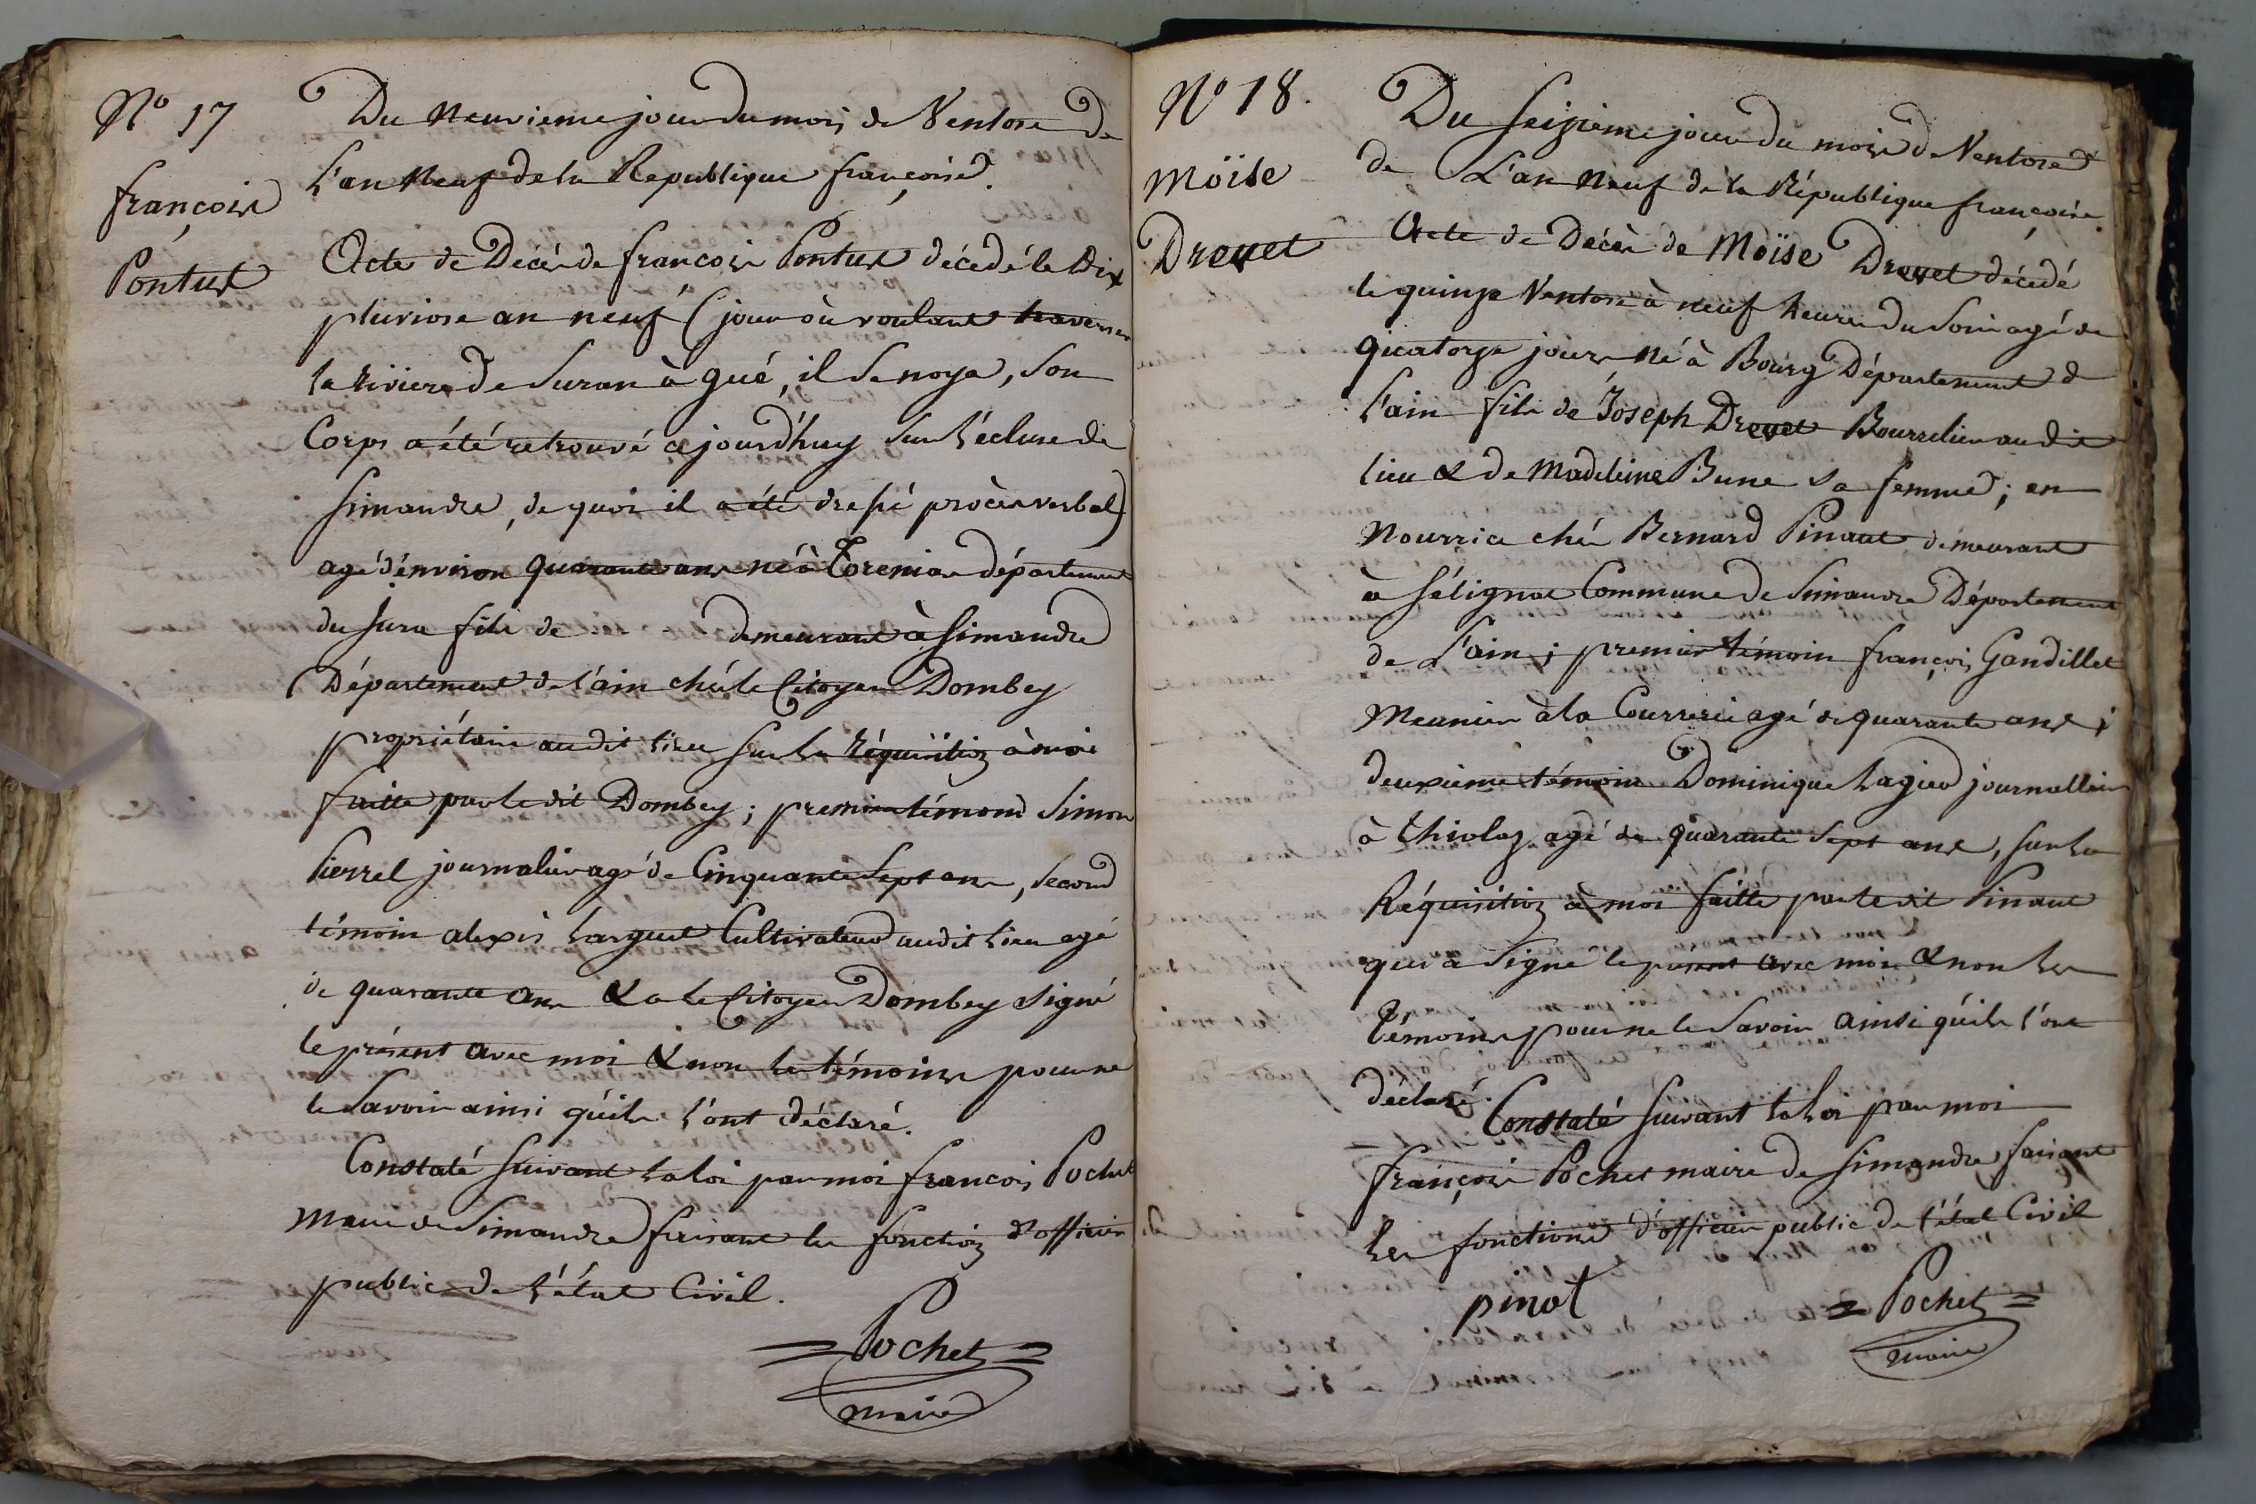 Nº 17
françois
Pontus
Du neuvieme jour du mois de Ventose de
L'an Neuf de la Republique françoise.
Acte de Décès de françois Pontus décédé le Dix
pluviose an neuf (jour où voulant traverser
la riviere de Suran à gué, il se noya, son
Corps a été retrouvé cejourd'huy sur l'écluse de
Simandre, de quoi il a été dressé procès verbal)
agé d'environ quarante ans né à département
du Jura fils de demeurant à Simandre
Département de l'ain chés le Citoyen Dombey
propriétaire audit lieu sur la réquisition à moi
faitte par le dit Dombey; premier témoin Simon
Pierrel journalier agé de Cinquante sept ans, second
témoin alexis Larguet Cultivateur audit lieu agé
de quarante ans & a le Citoyen Dombey signé
le présent avec moi & non les témoins pour ne
le savoir ainsi qu'ils l'ont déclaré.
Constaté suivant la loi par moi françois Pochet
Maire de Simandre faisant les fonctions d'officier
public de l'état Civil.
Pochet
maire
Nº 18.
Moïse
Drevet
Du Seizième jour du mois de Ventose
de L'an Neuf de la République françoise.
Acte de Décès de Moïse Drevet décédé
le quinze Ventose à neuf heures du Soir agé de
quatorze jours né à Bourg Département de
l'ain fils de Joseph Drevet Bourrelier audit
lieu & de Madeleine Bune sa femme; en
Nourrice chés Bernard Pinaut demeurant
à Sélignac Commune de Simandre Département
de L'ain; premier témoin françois Gandillet
Meunier à la Courrerie agé de quarante ans;
deuxieme témoin Dominique Lagier journallier
à Thiolaz agé de quarante sept ans, sur la
Réquisition à moi faitte par le dit Pinaut
qui a signé le présent avec moi & non les
témoins pour ne le savoir ainsi qu'ils l'ont
déclaré.
Constaté suivant la Loi par moi
françois Pochet maire de Simandre faisant
les fonctions d'officier public de l'état Civil
pinot
Pochet
maire